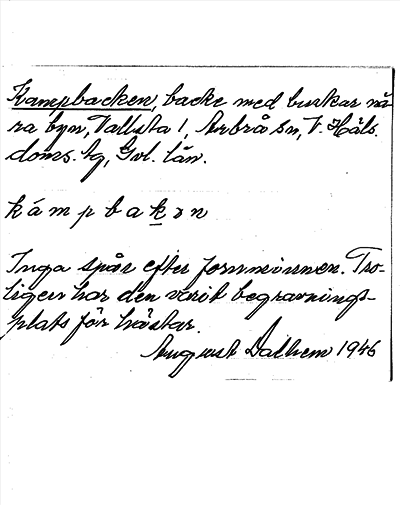 Kampbacken, backe med buskar nä-
ra byn, Vallsta 1, Arbrå sn, V. Häls.
doms. tg, Gvl. län.
kámpbakɔn
Inga spår efter fornminnen. Tro-
ligen har den varit begravnings-
plats för hästar.
August Dalhem 1946